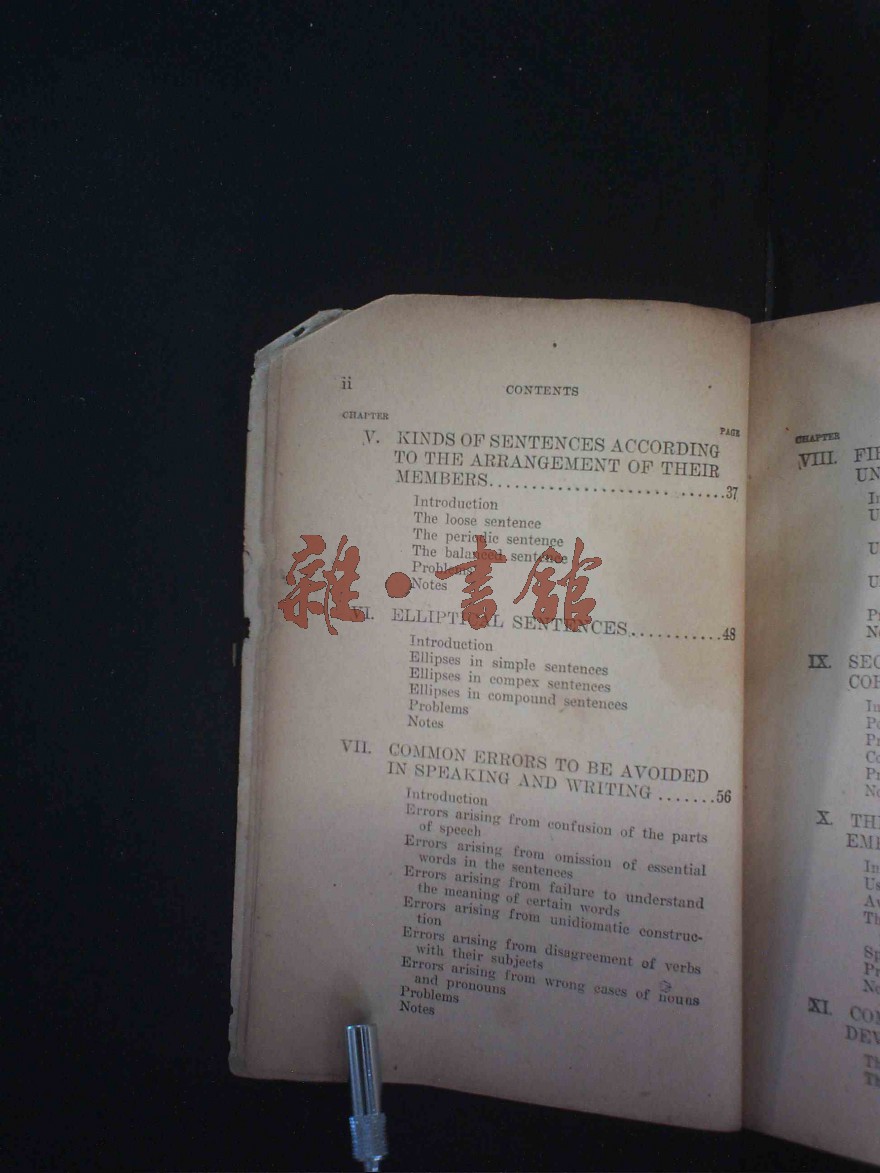 ii
CONTENTS
CHAPTER
PAGE
V. KINDS OF SENTENCES ACCORDING
TO THE ARRANGEMENT OF THEIR
MEMBERS............................37
Introduction
The loose sentence
The periodic sentence
The balanced sentence
Problems
Notes
VI. ELLIPTICAL SENTENCES...........48
Introduction
Ellipses in simple sentences
Ellipses in compex sentences
Ellipses in compound sentences
Problems
Notes
VII. COMMON ERRORS TO BE AVOIDED
IN SPEAKING AND WRITING .......56
Introduction
Errors arising from confusion of the parts
of speech
Errors arising from omission of essential
words in the sentences
Errors arising from failure to understand
the meaning of certain words
Errors arising from unidiomatic construc-
tion
Errors arising from disagreement of verbs
with their subjects
Errors arising from wrong cases of nouns
and pronouns
Problems
Notes
雜·書館
CHAPTER
VIII.
IX.
X.
XI.